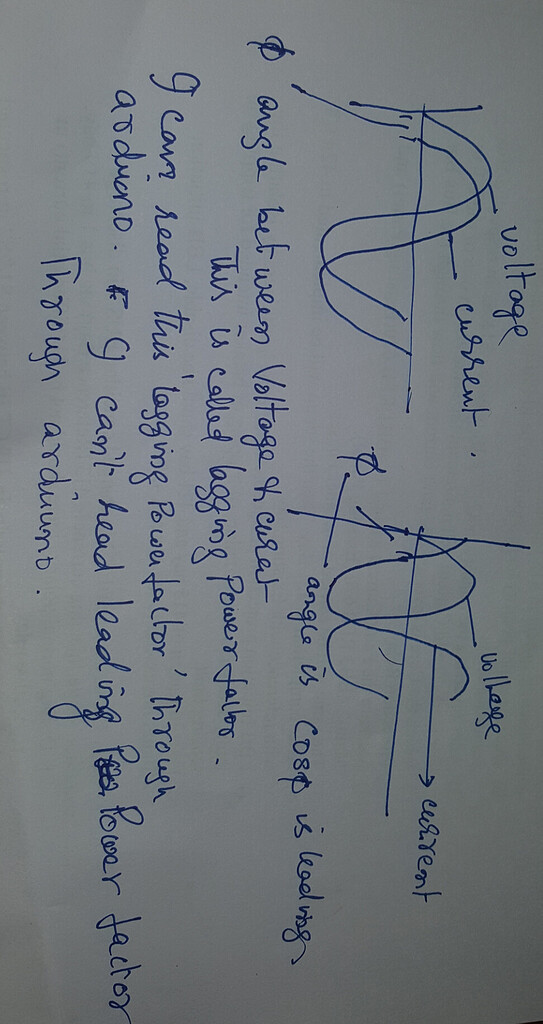 voltage
current.
φ
voltage
current
angle is cosφ is leading
φ angle between Voltage & curent
This is called lagging Power factor.
I can read this 'lagging Power factor' Through
arduino. I can't read leading Power factor
Through arduino.